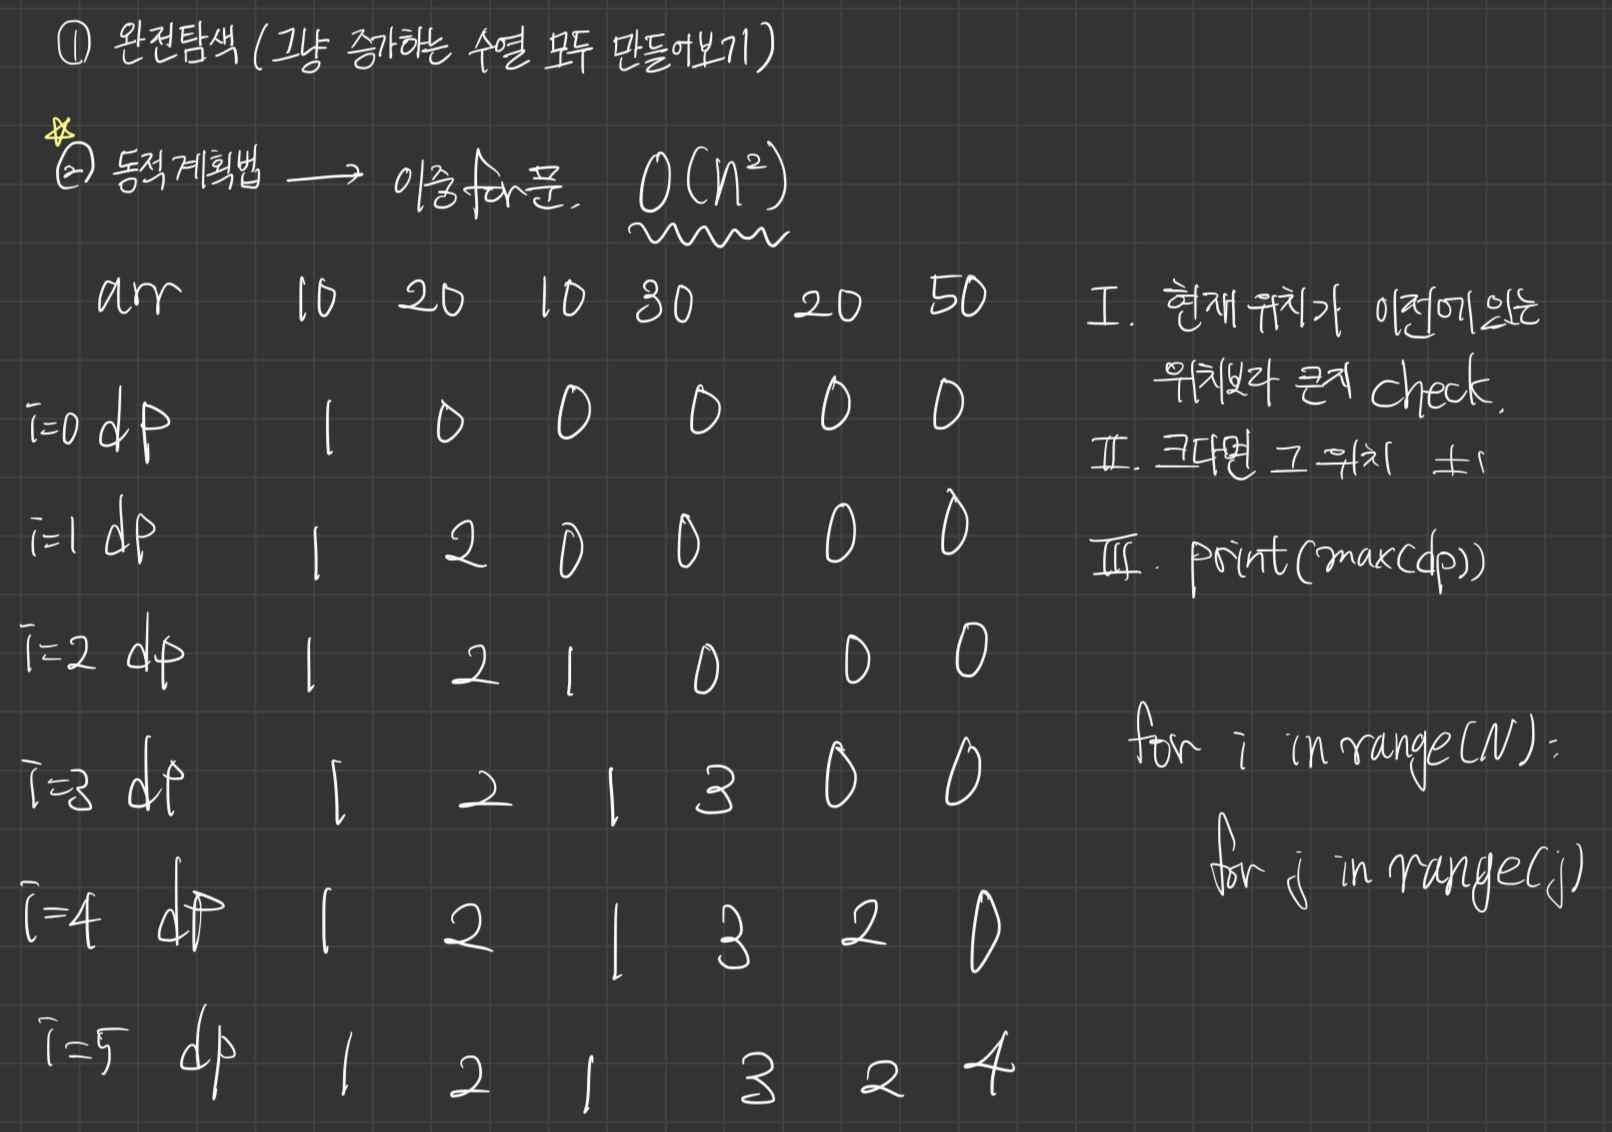 ① 완전탐색 (그냥 증가하는 수열 모두 만들어보기)
② 동적계획법 → 이중for문. O(n²)
arr 10 20 10 30 20 50
i=0 dp 1 0 0 0 0 0
i=1 dp 1 2 0 0 0 0
i=2 dp 1 2 1 0 0 0
i=3 dp 1 2 1 3 0 0
i=4 dp 1 2 1 3 2 0
i=5 dp 1 2 1 3 2 4
I. 현재 위치가 이전에 있는
위치보다 큰지 check.
II. 크다면 그 위치 +1
III. print(max(dp))
for i in range(N):
for j in range(j)